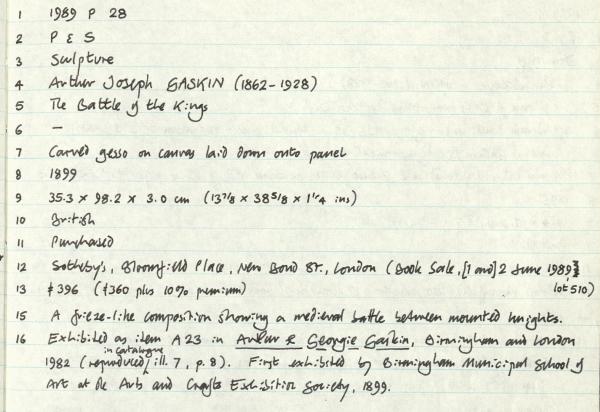 1 1989 P 28
2 P & S
3 Sculpture
4 Arthur Joseph GASKIN (1862-1928)
5 The Battle of the Kings
6 —
7 Carved gesso on canvas laid down onto panel
8 1899
9 35.3 x 98.2 x 3.0 cm (13 7/8 x 38 5/8 x 1 1/4 ins)
10 British
11 Purchased
12 Sotheby's, Bloomfield Place, New Bond St., London (Book Sale, [1 and] 2 June 1989,
13 £396 (£360 plus 10% premium) lot 510)
15 A frieze-like composition showing a medieval battle between mounted knights.
16 Exhibited as item A23 in Arthur & Georgie Gaskin, Birmingham and London
1982 (reproduced in catalogue, ill. 7, p. 8). First exhibited by Birmingham Municipal School of
Art at the Arts and Crafts Exhibition Society, 1899.